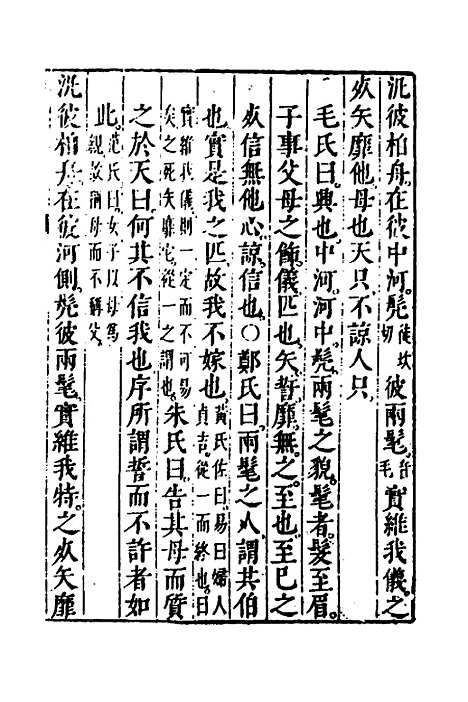 汎彼柏舟在彼中河髧徒坎切彼兩髦音毛實維我儀之
死矢靡他母也天只不諒人只
毛氏曰興也中河河中髧兩髦之貌髦者髮至眉
子事父母之飾儀匹也矢誓靡無之至也至已之
死信無他心諒信也○鄭氏曰兩髦之人謂共伯
也實是我之匹故我不嫁也黃氏佐曰易曰婦人貞吉從一而終也曰
實維我儀則一定而不可易矣之死矢靡它從一之謂也朱氏曰告其母而質
之於天曰何其不信我也序所謂誓而不許者如
此范氏曰女子以母爲親故稱母而不稱父
汎彼柏舟在彼河側髧彼兩髦實維我特之死矢靡